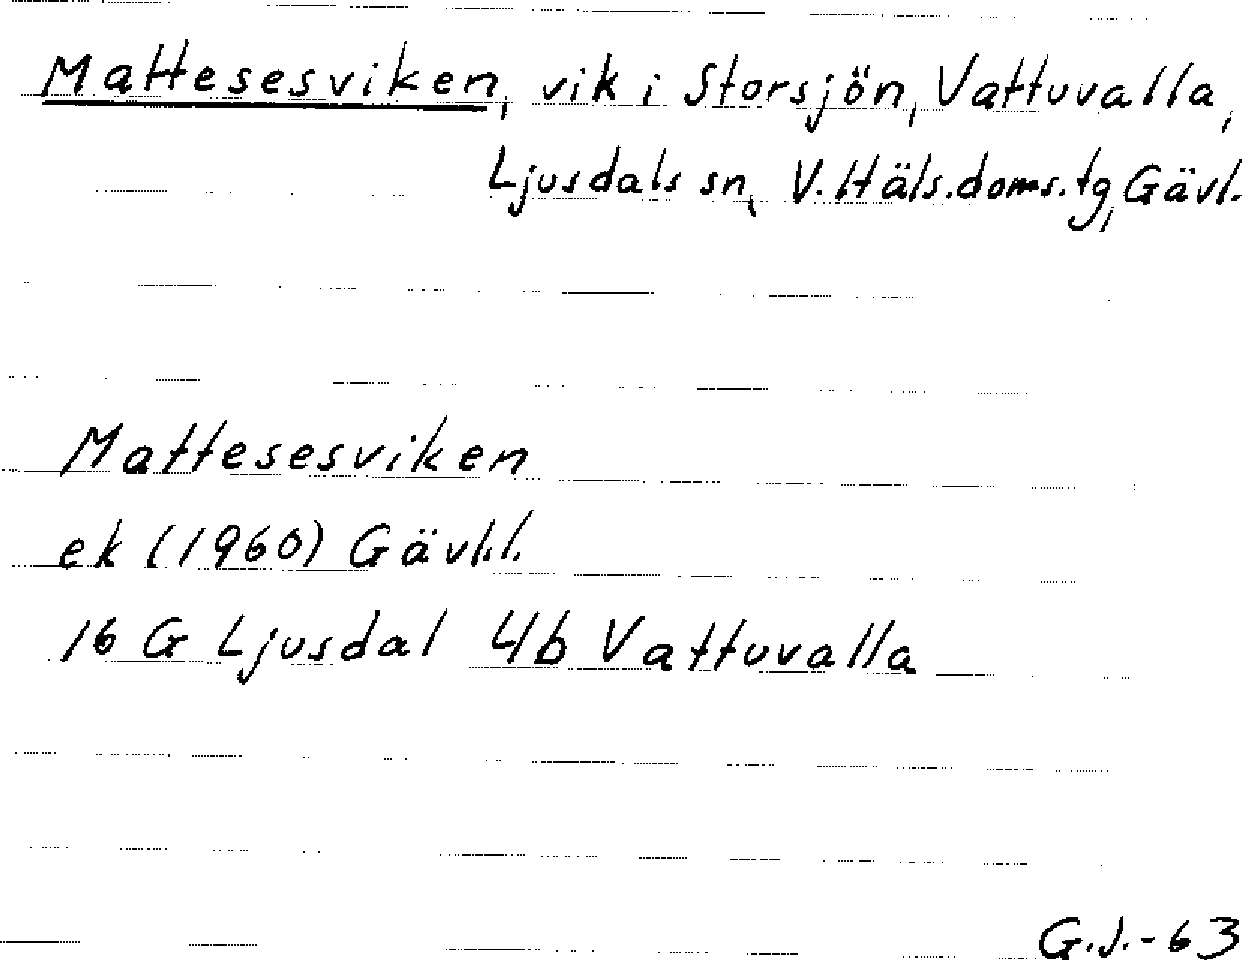 Mattesesviken, vik i Storsjön, Vattuvalla,
Ljusdals sn, V. Häls. doms. tg, Gävl.
Mattesesviken
ek (1960) Gävl.l.
16 G Ljusdal 4b Vattuvalla
G.J.-63